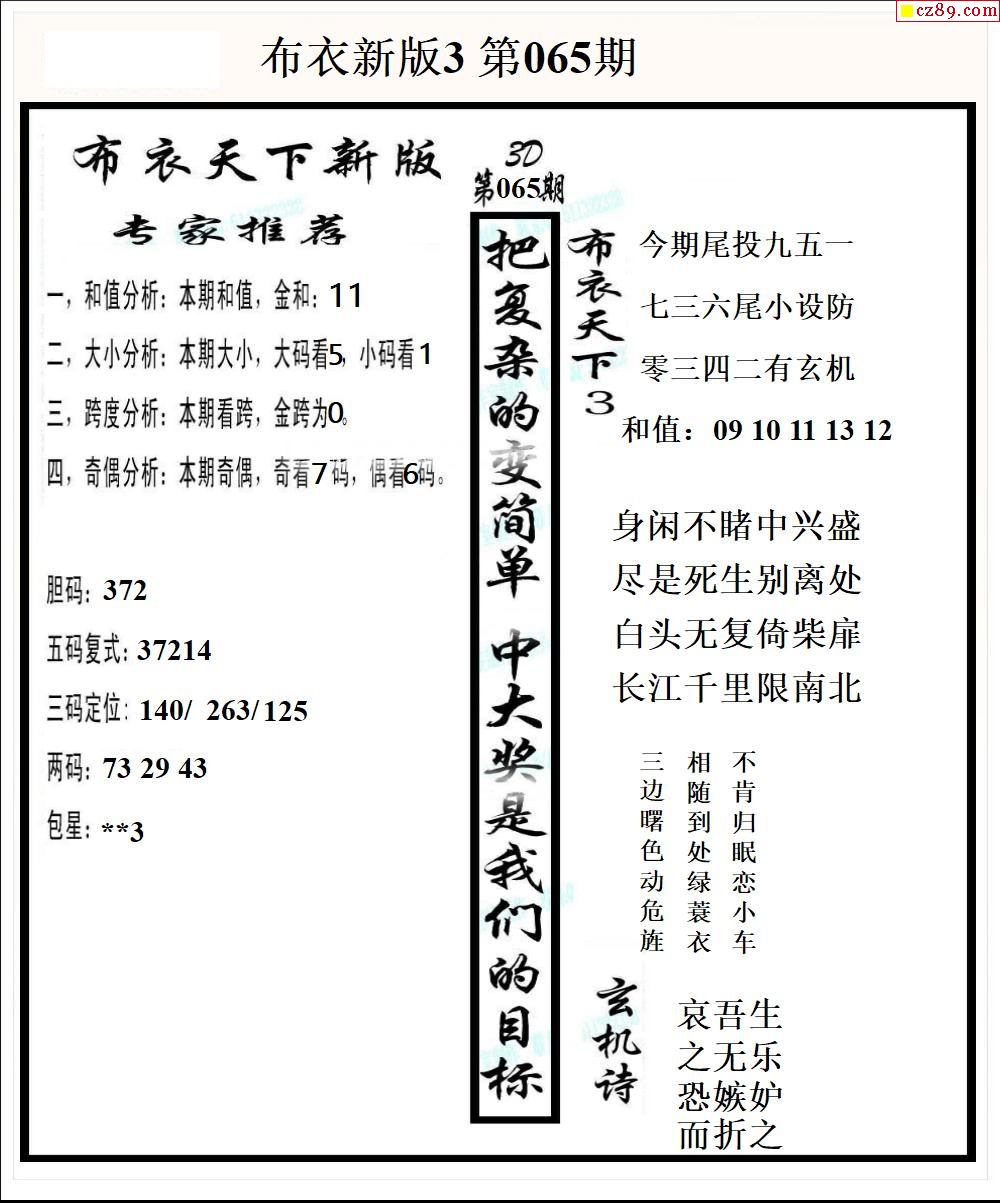 cz89.com
布衣新版3 第065期
布衣天下新版
专家推荐
一，和值分析：本期和值，金和：11
二，大小分析：本期大小，大码看5，小码看1
三，跨度分析：本期看跨，金跨为0。
四，奇偶分析：本期奇偶，奇看7码，偶看6码。
胆码：372
五码复式：37214
三码定位：140/ 263/125
两码：73 29 43
包星：**3
3D
第065期
把复杂的变简单 中大奖是我们的目标
布衣天下3
今期尾投九五一
七三六尾小设防
零三四二有玄机
和值：09 10 11 13 12
身闲不睹中兴盛
尽是死生别离处
白头无复倚柴扉
长江千里限南北
不肯归眠恋小车
相随到处绿蓑衣
三边曙色动危旌
玄机诗
哀吾生
之无乐
恐嫉妒
而折之